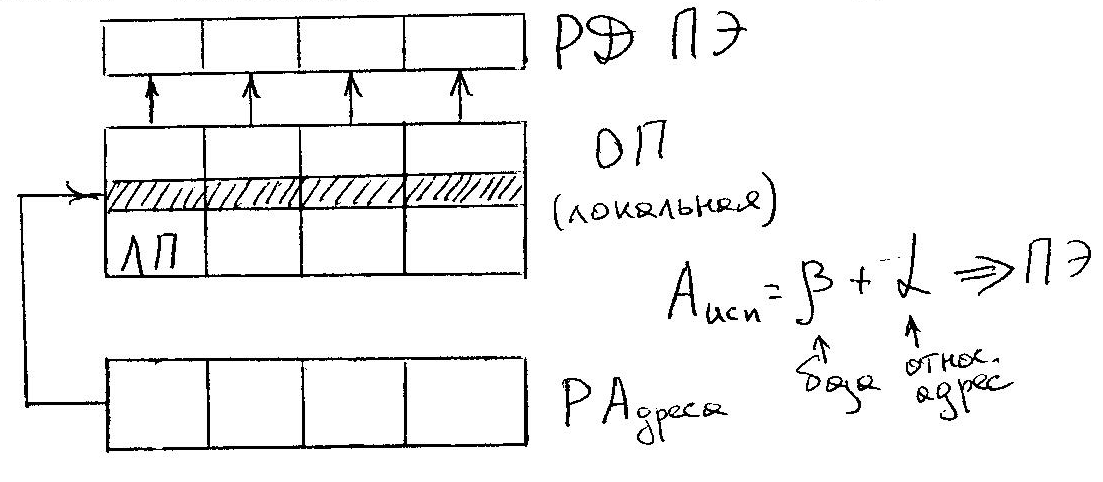 РД ПЭ
ОП
(локальная)
ЛП
Aисп = β + α ⇒ ПЭ
база
относ.
адрес
РАдреса